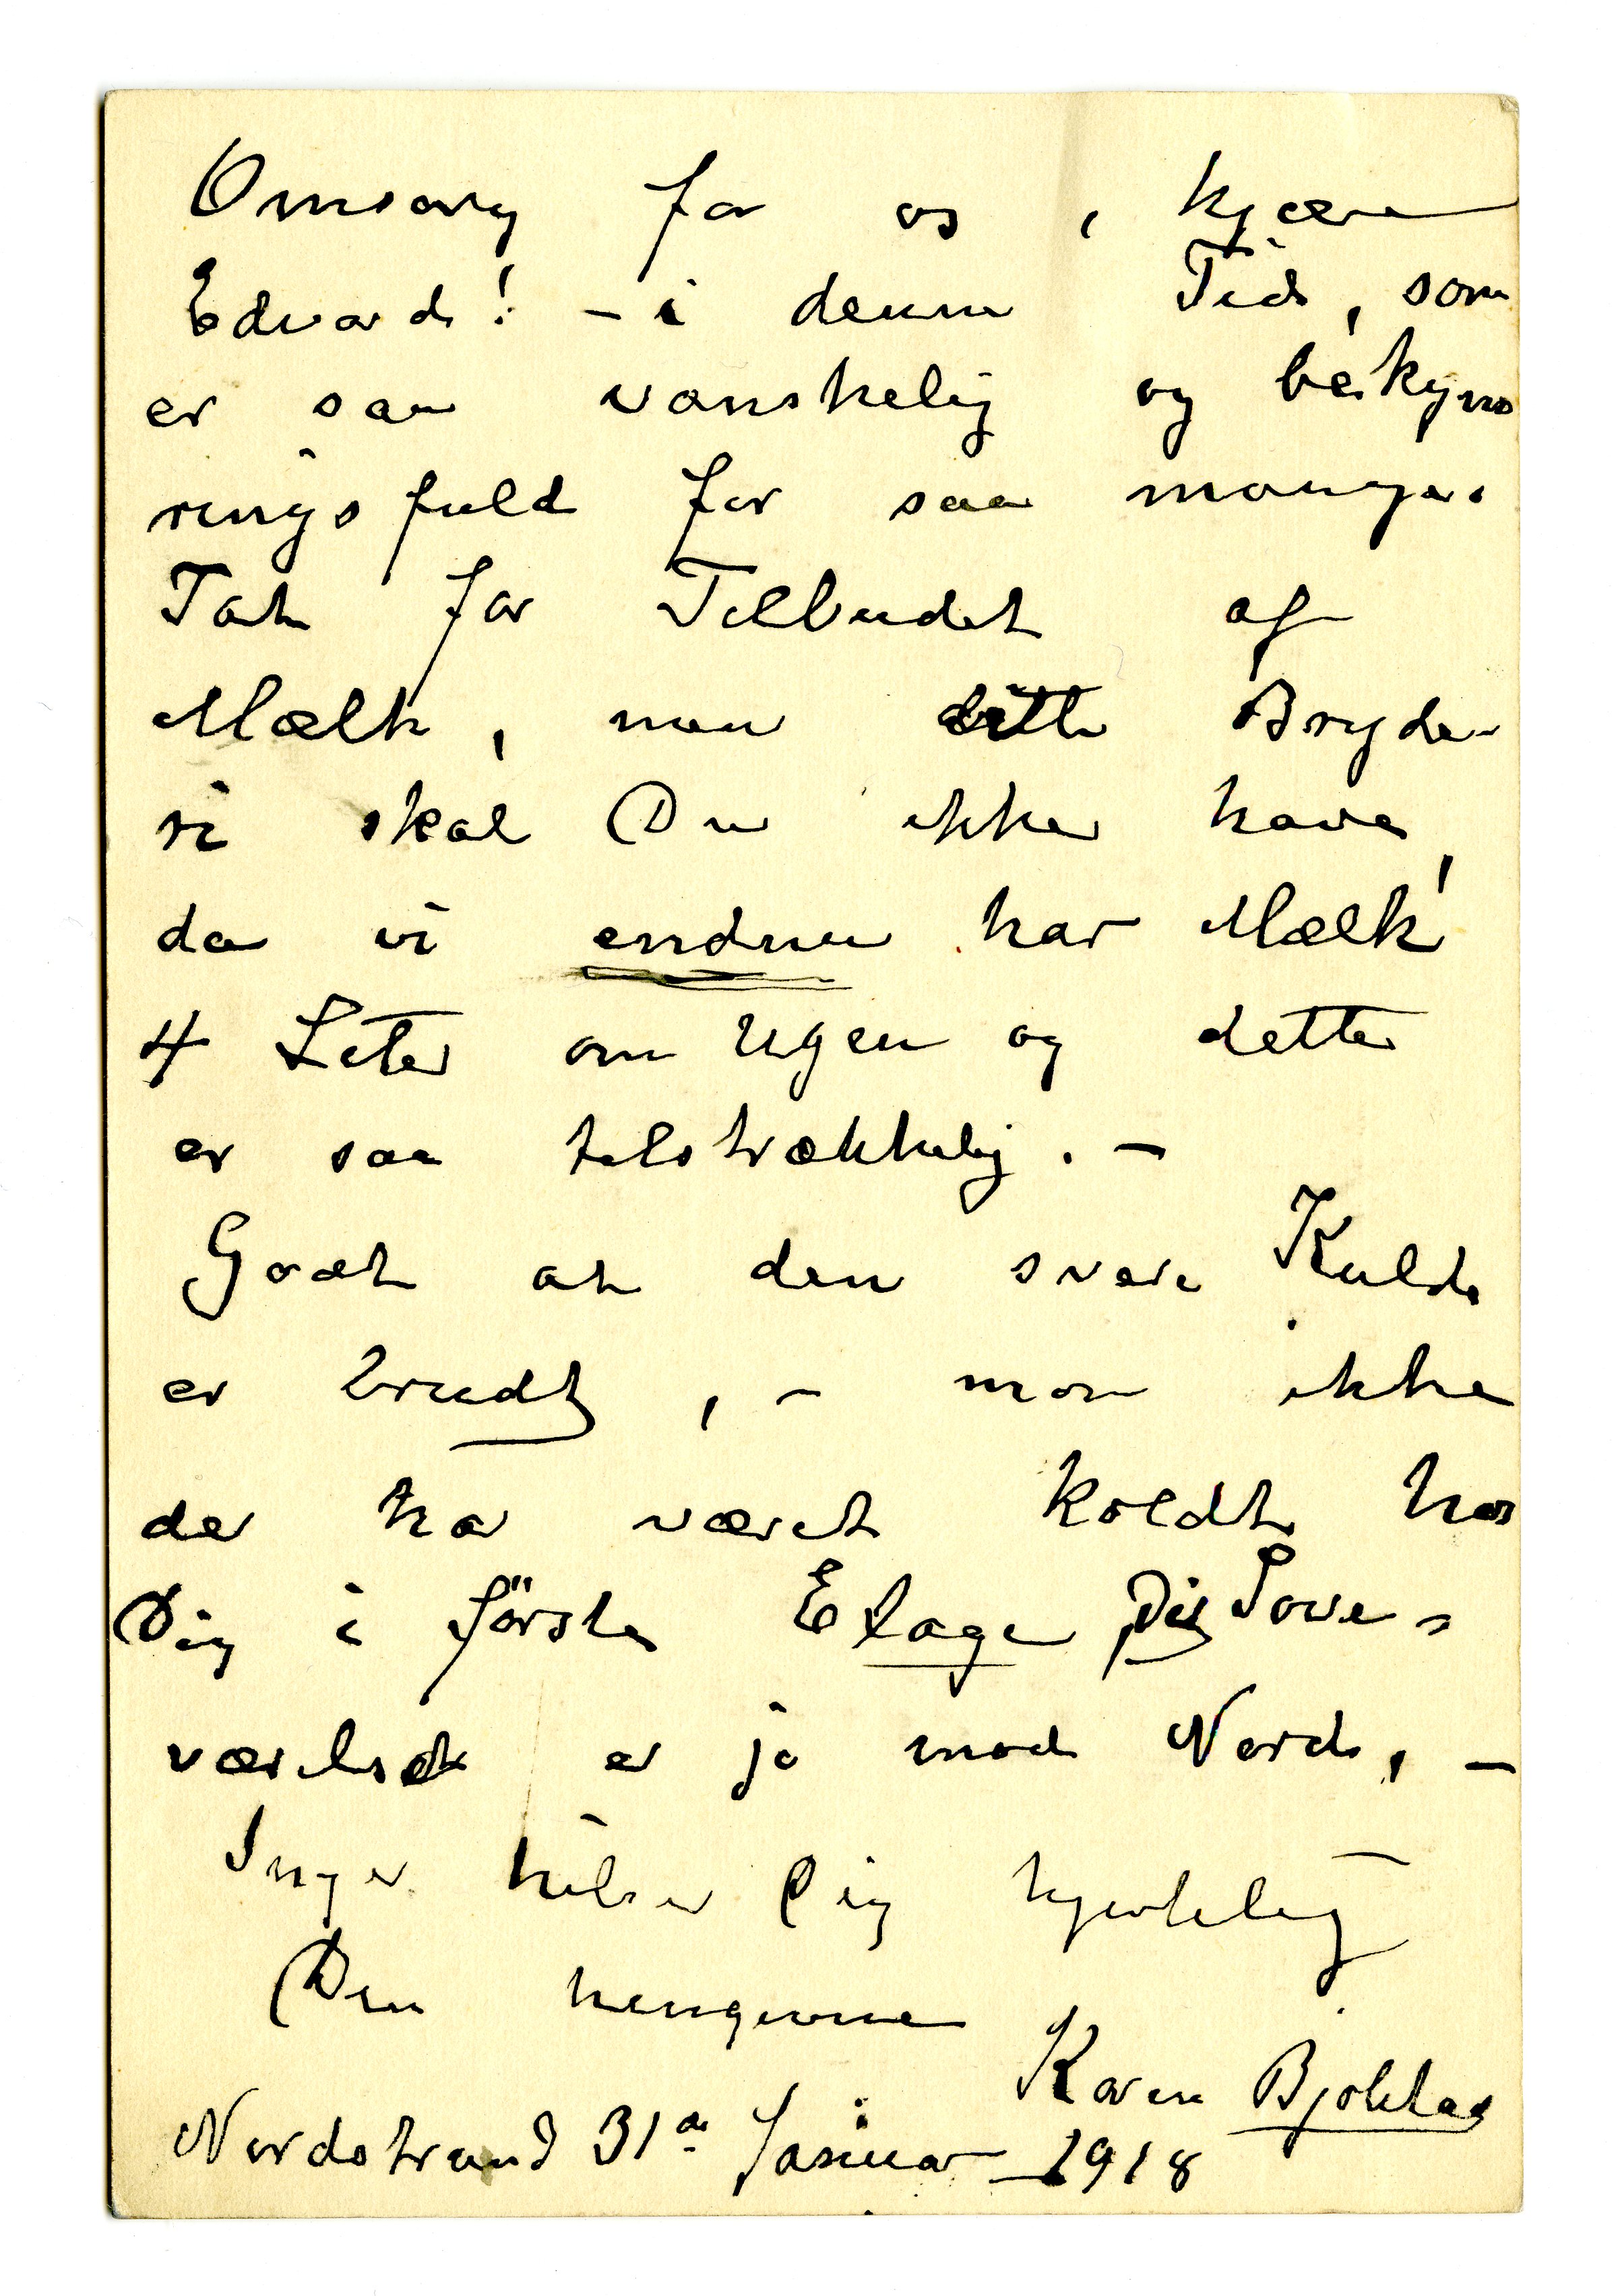 Omsorg for os, kjære
Edvard! – i denne Tid, som
er saa vanskelig og bekym
ringsfuld for saa mange.
Tak for Tilbudet af
Mælk, men dette Bryde-
ri skal Du ikke have,
da vi endnu har Mælk
4 Liter om Ugen og dette
er saa tilstrækkelig. –
Godt at den svære Kulde
er brudt, – mon ikke
der har været koldt hos
Dig i förste Etage, Dit Sove-
værelset er ja mod Nord, –
Inger hilser Dig hjertelig
Din hengivne
Karen Bjølstad
Nordstrand 31de Januar 1918